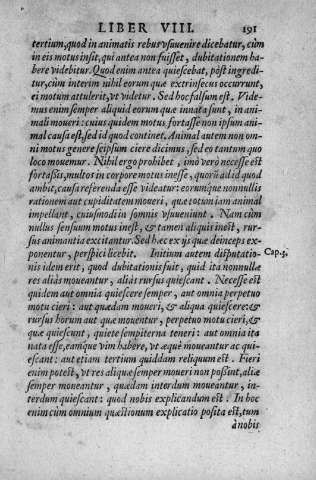 LIBER VIII. 191
tertium, quod in animatis rebus vsuuenire dicebatur, cùm
in eis motus insit, qui antea non fuisset, dubitationem ha-
bere videbitur. Quod enim antea quiescebat, pòst ingredi
tur, cùm interim nihil eorum quæ extrinsecus occurrunt,
ei motum attulerit, vt videtur. Sed hoc falsum est. Vide-
mus enim semper aliquid eorum quæ innata sunt, in ani-
mali moueri: cuius quidem motus fortasse non ipsum ani-
mal causa est, sed id quod continet. Animal autem non om-
ni motus genere seipsum ciere dicimus, sed eo tantum quo
loco mouemur. Nihil ergo prohibet, imò verò necesse est
fortasse, multos in corpore motus inesse, quorū ad id quod
ambit, causa referenda esse videatur: eorumque nonnullis
rationem aut cupiditatem moueri, quæ totum iam animal
impellant, cuiusmodi in somnis vsuueniunt. Nam cùm
nullus sensuum motus inest, & tamen aliquis inest, rur-
sus animantia excitantur. Sed hæc ex ijs quæ deinceps ex-
ponentur, perspici licebit. Initium autem disputatio-
Cap. 3.
nis idem erit, quod dubitationis fuit, quid ita nonnullæ
res aliàs moueantur, aliàs rursus quiescant. Necesse est
quidem aut omnia quiescere semper, aut omnia perpetuo
motu cieri: aut quædam moueri, & aliqua quiescere: &
rursus horum aut quæ mouentur, perpetuo motu cieri, &
quæ quiescunt, quiete sempiterna teneri: aut omnia ita
nata esse, eamque vim habere, vt æquè moueantur ac qui-
escant: aut etiam tertium quiddam reliquum est. Fieri
enim potest, vt res aliquæ semper moueri non possint, aliæ
semper moneantur, quædam interdum moueantur, in-
terdum quiescant: quod nobis explicandum est. In hoc
enim cùm omnium quæstionum explicatio posita est, tum
à nobis